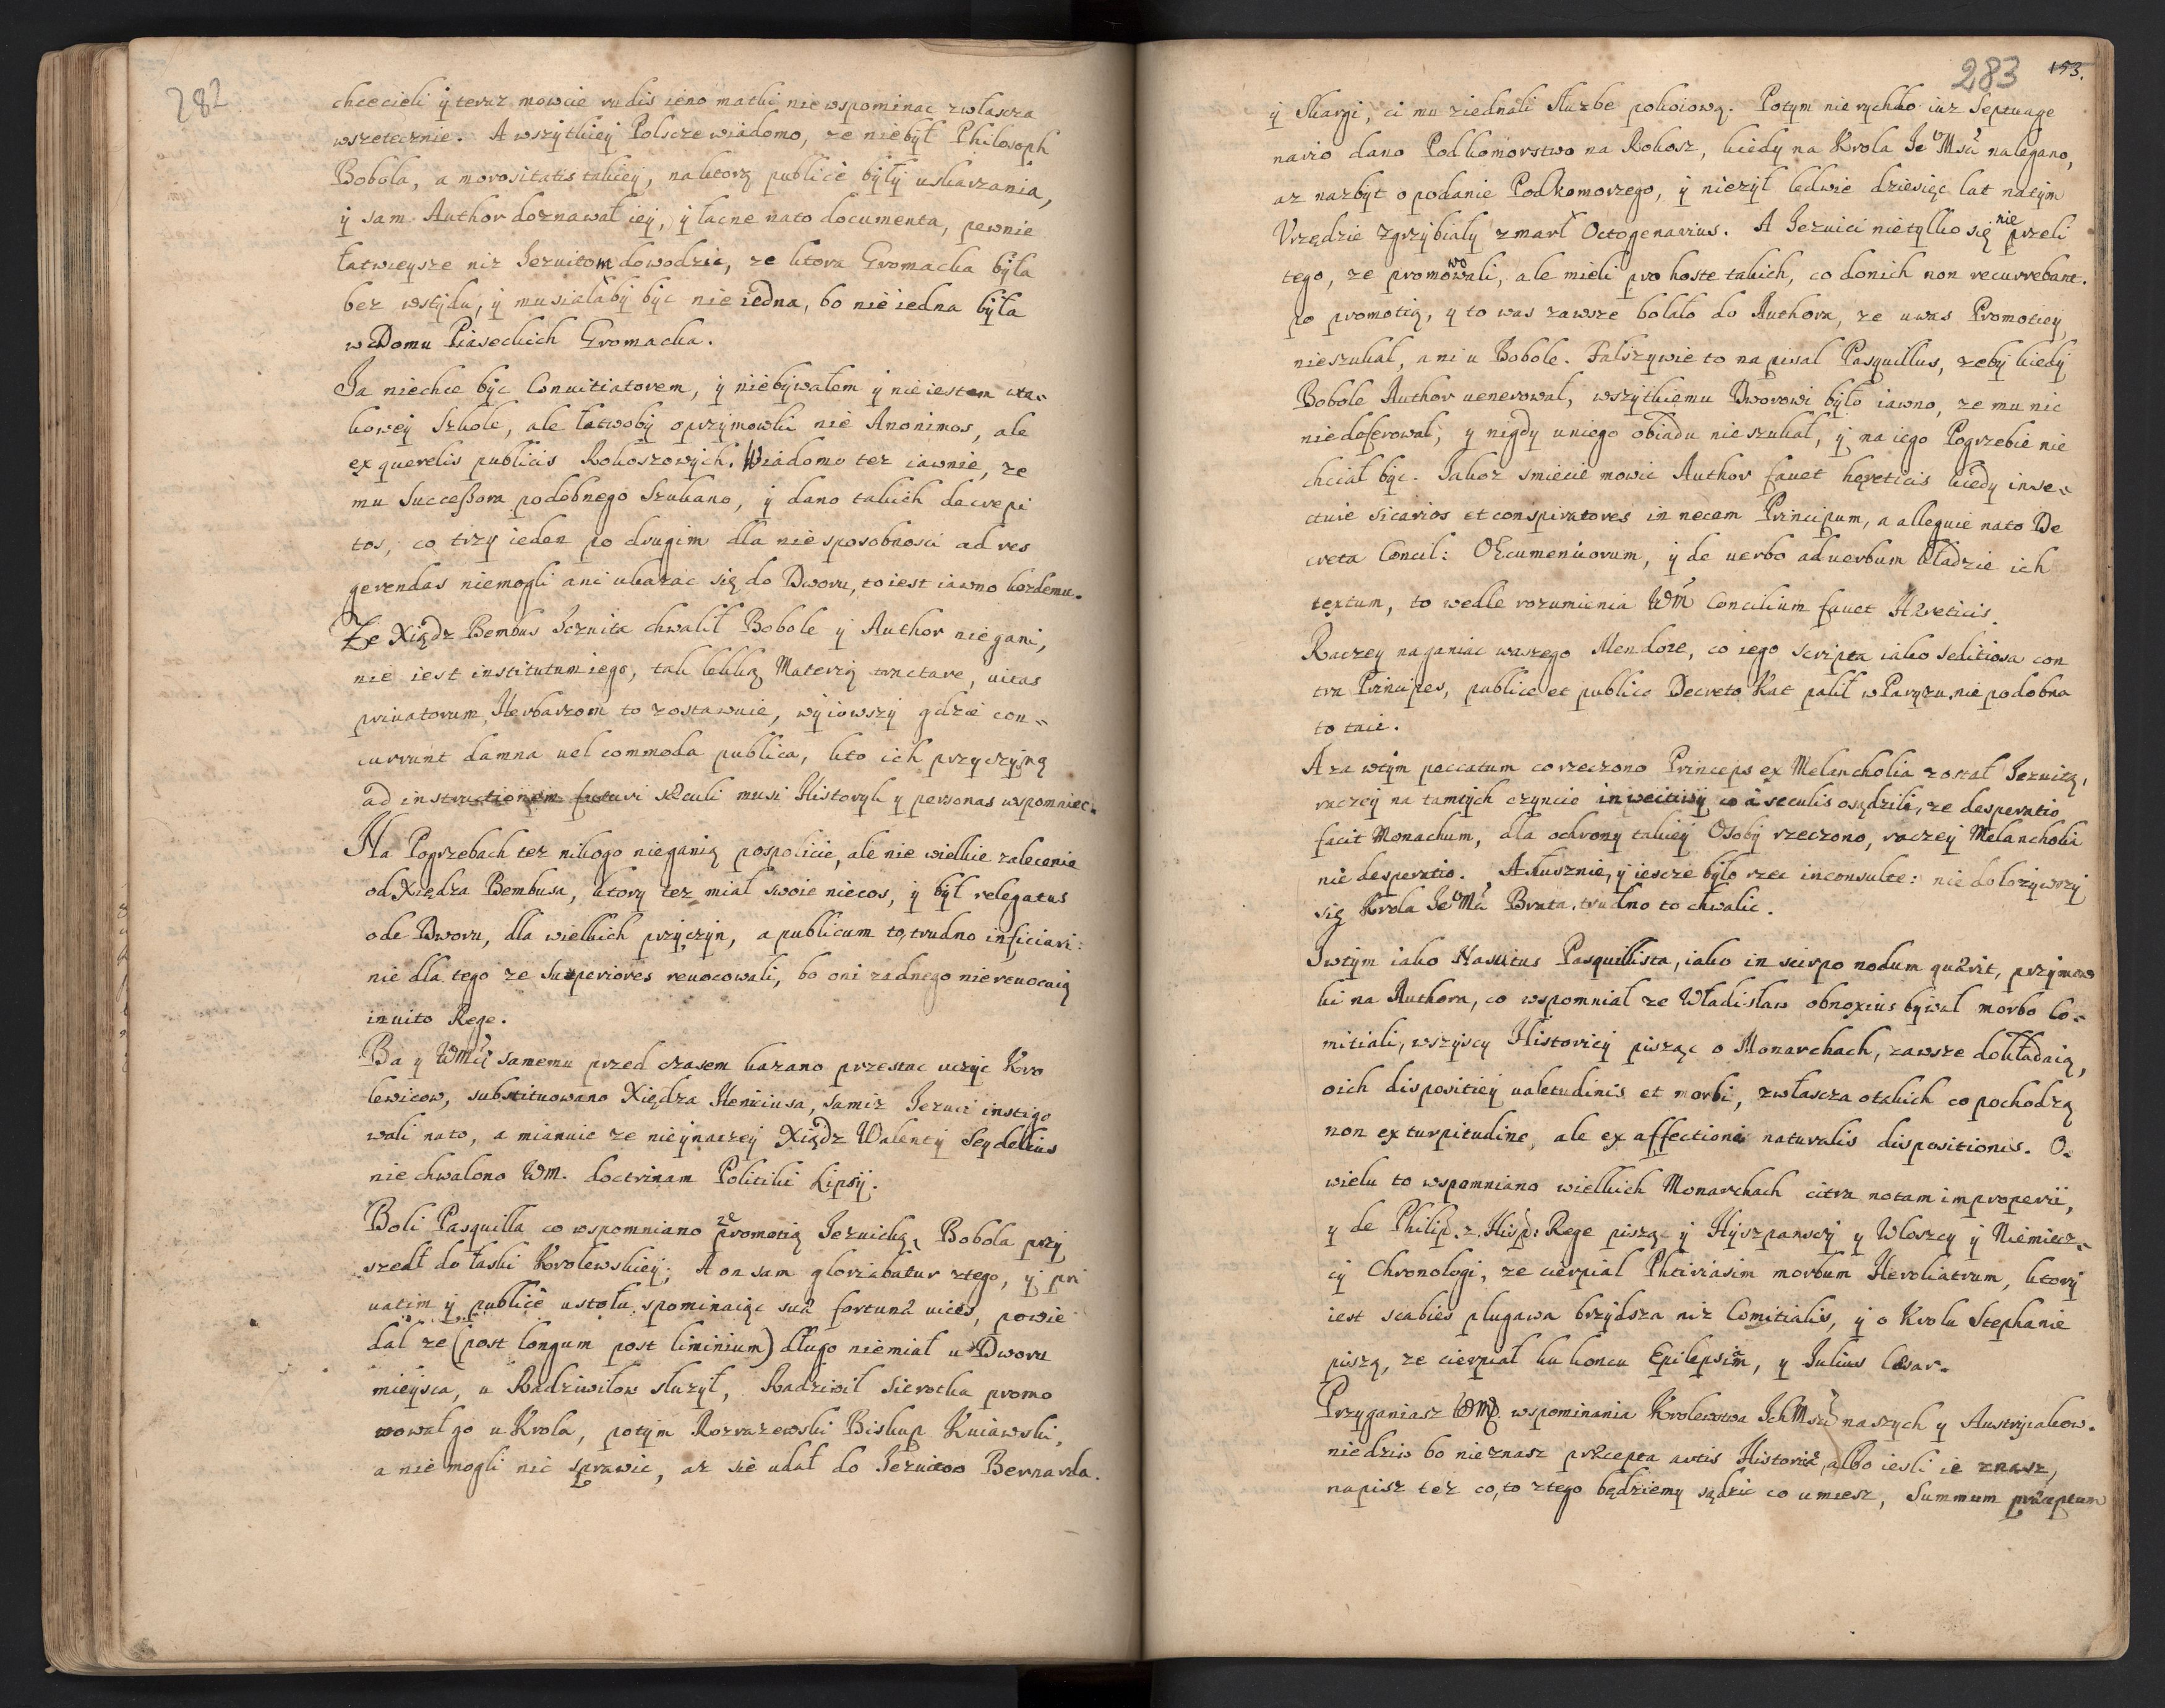 282
chcecieli ÿ teraz mowcie rudis ieno matki nie wspominac zwłascza
wszetecznie. A wszÿtkieÿ Polscze wiadomo, ze niebÿł Philosoph
Bobola, a morositatis takieÿ, naktorą publicè bÿłÿ uskarzania,
ÿ sam Author doznawał ieÿ, ÿ łacne nato documenta, pewnie
łatwieÿsze niz Jezuitom dowodzic, ze ktora Gromacka bÿła
bez wstÿdu, ÿ musiałabÿ bÿc nie iedna, bo nie iedna bÿła
w Domu Piaseckich Gromacka.
Ja niechce bÿc Conuitiatorem, ÿ niebÿwałem ÿ nieiestem wta=
koweÿ Szkole, ale łatwobÿ oprzÿmowki nie Anonimos, ale
ex querelis publicis Rokoszowÿch. Wiadomo tez iawnie, ze
mu Successora podobnego Szukano, ÿ dano takich decrepi
tos, co trzy ieden po drugim dla nie sposobnosci ad res
gerendas niemogli ani ukazac się do Dworu, to iest iawno kozdemu.
Że Xiądz Bembus Jezuita chwalił Bobole ÿ Author niegani,
nie iest institutum iego, tak lekką Materią tractare, uitas
priuatorum, Herbarzom to zostawuie, wÿiowszÿ gdzie con=
currunt damna uel commoda publica, kto ich przÿczÿną
ad instructionem futuri sæculi musi Historÿk ÿ personas wspomniec.
Na Pogrzebach tez nikogo nieganią pospolicie, ale nie wielkie zalecenie
od Xiędza Bembusa, ktory tez miał swoie niecos, ÿ bÿł relegatus
ode Dworu, dla wielkich przÿczÿn, a publicum to, trudno inficiari:
nie dla tego ze Superiores reuocowali, bo oni zadnego nie reuocuią
inuito Rege.
Ba ÿ WMci samemu przed czasem kazano przestac uczÿc Kro
lewicow, substituowano Xiędza Heniciusa, samiz Jezuici instigo
wali nato, a mianuie ze nieÿnaczeÿ Xiądz Walentÿ Seÿdelius
nie chwalono WM. doctrinam Politiki Lipsÿ.
Boli Pasquilla co wspomniano ze promotią Jezuicką, Bobola przÿ
szedł do łaski Krolewskieÿ; A on sam gloriabatur ztego, ÿ pri
uatim ÿ publicè ustołu, spominaiąc suæ fortunæ uices, powie
dał ze (post longum post liminium) długo niemiał u Dworu
mieÿsca, u Radziwiłow służÿł, Radziwił Sierotka promo
wował go u Krola, potÿm Rozrazewski Biskup Kuiawski,
a nie mogli nic sprawic, az sie udał do Jezuitow Bernarda.
283 193.
ÿ Skargi, ci mu ziednali służbe pokoiową. Potÿm nierÿchło iuz Septuage
nario dano Podkomorstwo na Rokosz, kiedÿ na Krola Je Mści nalegano,
az nazbÿt opodanie Podkomorzego, ÿ nieżÿł ledwie dziesięc lat natÿm
Urzędzie zgrzÿbiałÿ zmarł Octogenarius. A Jezuici nietÿlko się nie przeli
tego, ze promowowali, ale mieli pro hoste takich, co donich non recurrebant.
po promotią, ÿ to was zawsze bolało do Authora, ze uwas Promotieÿ
nieszukał, ani u Bobole. Fałszÿwie to napisał Pasquillus, zebÿ kiedÿ
Bobole Author uenerował, wszÿtkiemu Dworowi bÿło iawno, ze mu nic
niedeferował, ÿ nigdÿ uniego obiadu nie szukał, ÿ na iego Pogrzebie nie
chciał bÿc. Jakoz smiecie mowic Author fauet hæreticis kiedÿ inse=
ctuie sicarios et conspiratores in necem Principum, a alleguie nato De
creta Concil: OEcumenicorum, ÿ de uerbo ad uerbum kładzie ich
textum, to wedle rozumienia WM Concilium fauet Hæreticis.
Raczeÿ naganiac waszego Mendoze, co iego scripta iako seditiosa con
tra Principes, publice et publico Decreto Kat palił w Parÿzu, nie podobna
to taic.
Aza wtÿm peccatum co rzeczono Princeps ex Melancholia został Jezuitą,
raczeÿ na tamtÿch czÿncie inwectiwÿ co à seculis osądzili, ze desperatio
facit Monachum, dla ochronÿ takieÿ Osobÿ rzeczono, raczeÿ Melancholia
nie desperatio. A słusznie, ÿ iescze bÿło rzec inconsulte: nie dołozÿwszÿ
się Krola Je Mci Brata, trudno to chwalic.
Iwtÿm iako Nasutus Pasquillista, iako in scirpo nodum quærit, przÿmow
ki na Authora, co wspomniał ze Władisław obnoxius bÿwał morbo Co=
mitiali, wszÿscÿ Historicÿ pisząc o Monarchach, zawsze dokładaią,
oich dispositieÿ ualetudinis et morbi, zwłascza otakich co pochodzą
non ex turpitudine, ale ex affectione naturalis dispositionis. O.
wielu to wspomniano wielkich Monarchach citra notam improperii,
ÿ de Philip. 2. Hisp: Rege piszą ÿ Hÿszpanscÿ ÿ Włoszcÿ ÿ Niemiecz=
cÿ Chronologi, ze cierpiał Phtiriasim morbum Heroliatrum, ktorÿ
iest scabies plugawa brzÿdsza niz Comitialis, ÿ o Krolu Stephanie
piszą, ze cierpiał ku koncu Epilepsiam, ÿ Julius Cæsar.
Przÿganiasz WM. wspominania Krolewstwa Ich Mści naszÿch ÿ Austrÿakow.
nie dziw bo nie znasz præcepta artis Historiæ, albo iesli ie znasz,
napisz tez co, to ztego będziemÿ sądzic co umiesz, Summum præceptum